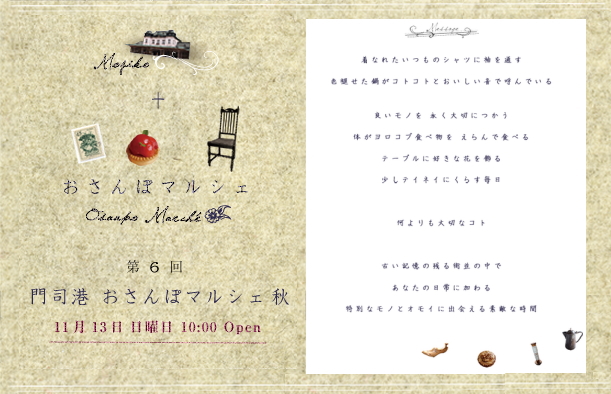 Mojiko
+
おさんぽマルシェ
Osanpo Marché
第6回
門司港 おさんぽマルシェ秋
11月13日 日曜日 10:00 Open
Message
着なれたいつものシャツに袖を通す
色褪せた鍋がコトコトとおいしい音で呼んでいる
良いモノを 永く大切につかう
体がヨロコブ食べ物を えらんで食べる
テーブルに好きな花を飾る
少しテイネイにくらす毎日
何よりも大切なコト
古い記憶の残る街並の中で
あなたの日常に加わる
特別なモノとオモイに出会える素敵な時間